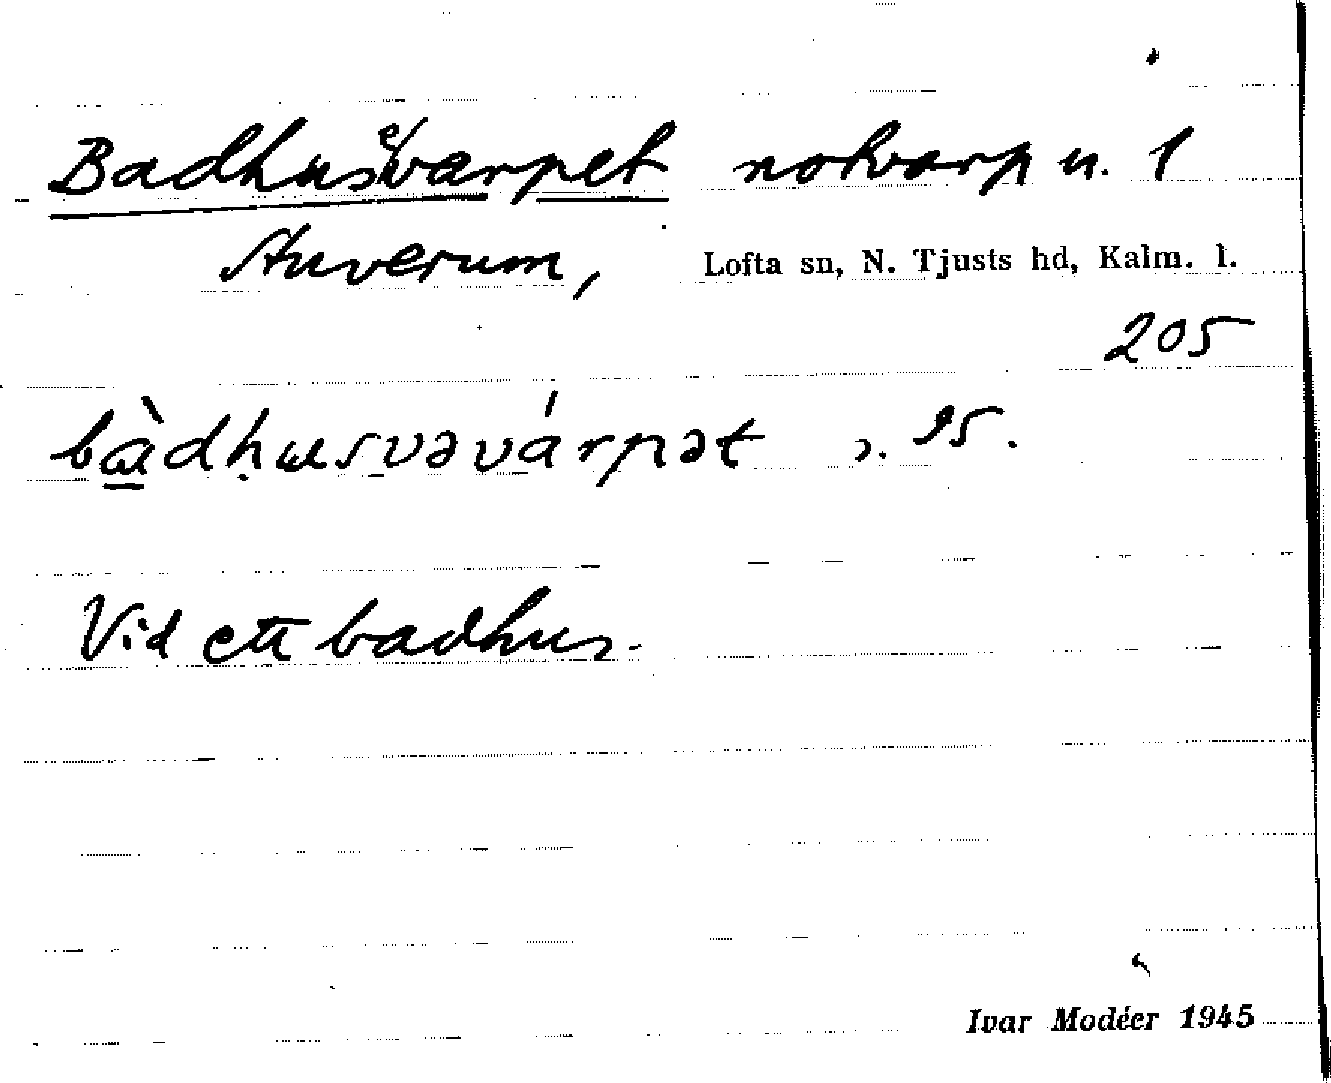 Badhusevarpet notvarp u. 1
Anverum, Lofta sn, N. Tjusts hd, Kalm. l.
205
bàdhusvəvárpət
Vid ett badhus.
Ivar Modéer 1945